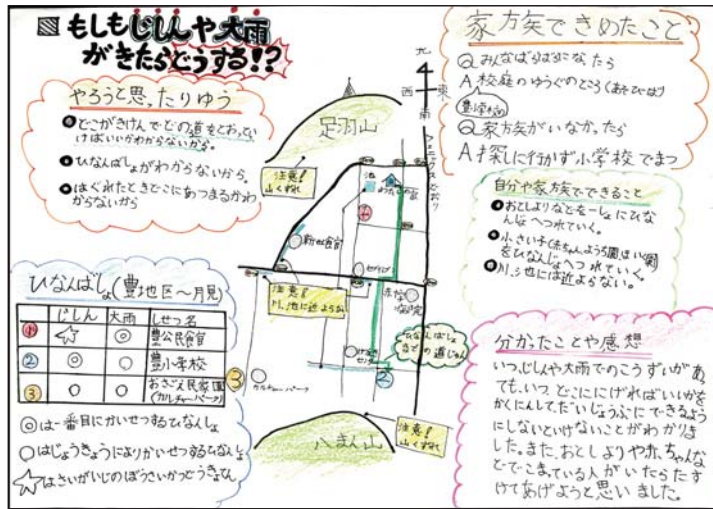 もしもじしんや大雨
がきたらどうする!?
やろうと思ったりゆう
●どこがきけんでどの道をとおってい
けばいいかわからないから。
●ひなんばしょがわからないから。
●はぐれたときどこにあつまるかわ
からないから
ひなんばしょ(豊地区〜月見)
じしん 大雨 しせつ名
① ☆ ◎ 豊公民館
② ◎ ◎ 豊小学校
③ ○ ○ おさごえ民家園
(カルチャーパーク)
◎は一番目にかいせつするひなんじょ
○はじょうきょうによりかいせつするひなんじょ
☆はさいがいじのぼうさいかつどうきょてん
北
西 東
南
フェニックスどおり
足羽山
注意!
山くずれ
池
注意!
川、池に近よらない
ひなんばしょ
までの道じゅん
②
③
カルチャーパーク
八まん山
注意!
山くずれ
家族できめたこと
Q みんなばらばらになったら
A 校庭のゆうぐのところ(あそびば)
豊小学校の
Q 家族がいなかったら
A 探しに行かず小学校でまつ
自分や家族でできること
●おとしよりなどをいっしょにひなん
じょへつれていく。
●小さい子(赤ちゃん、ようち園、ほいく園)
をひなんじょへつれていく。
●川、池には近よらない。
分かったことや感想
いつ、じしんや大雨でのこうずいがあっ
ても、いつ、どこににげればいいかを
かくにんして、だいじょうぶにできるよう
にしないといけないことがわかりま
した。また、おとしよりや赤ちゃんな
どでこまっている人がいたらたす
けてあげようと思いました。